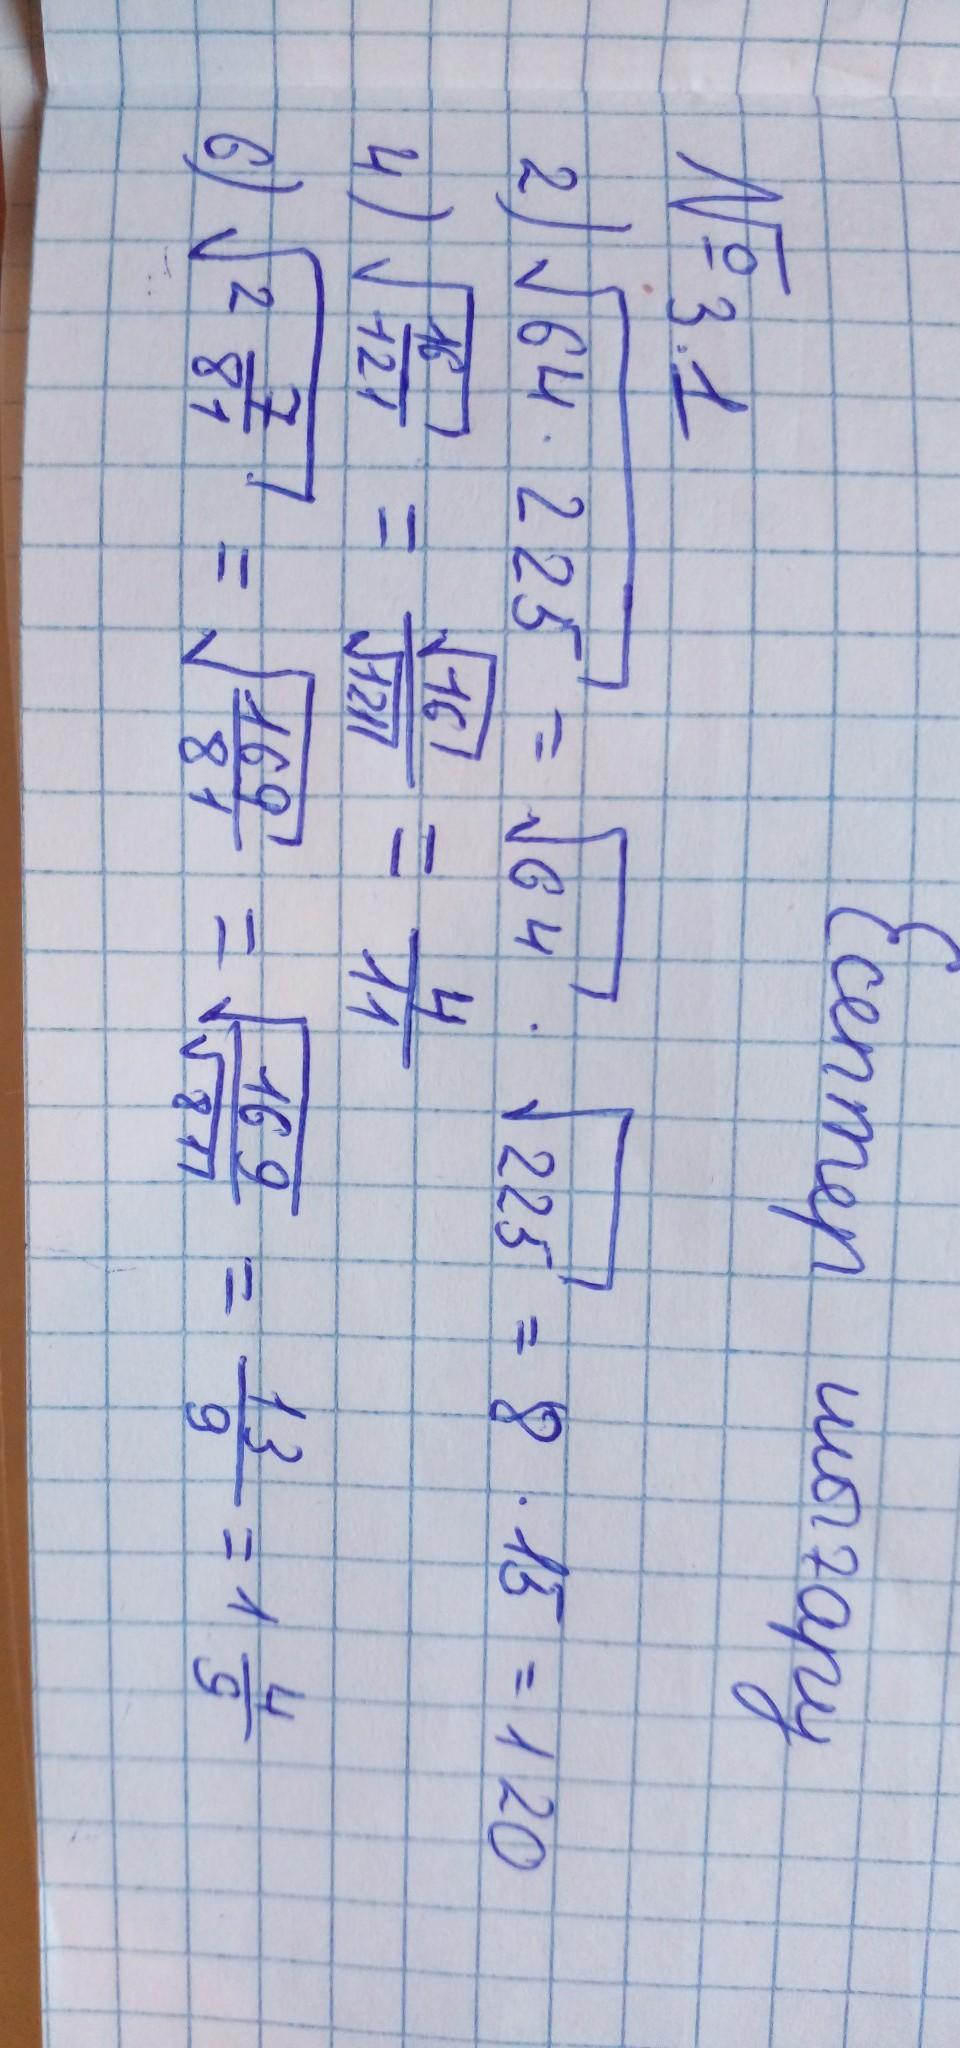 Есептер шығару
№ 3.1
2) √64 · 225 = √64 · √225 = 8 · 15 = 120
4) √16/121 = √16/√121 = 4/11
6) √2 7/81 = √169/81 = √169/√81 = 13/9 = 1 4/9